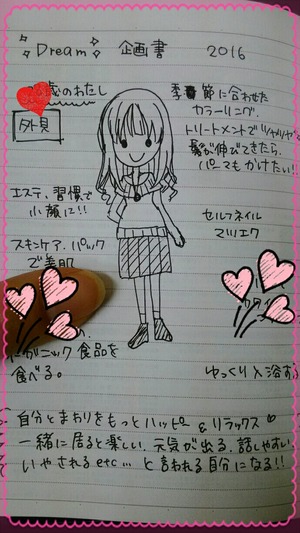 Dream 企画書 2016
歳のわたし
外見
季節に合わせた
カラーリング.
トリートメントでツヤツヤ
髪が伸びてきたら、
パーマもかけたい!!
エステ、習慣で
小顔に!!
セルフネイル
マツエク
スキンケア、パック
で美肌
ガニック食品を
食べる。
ゆっくり入浴する
自分とまわりをもっとハッピー&リラックス
一緒に居ると楽しい、元気が出る、話しやすい
いやされるetc…と言われる自分になる!!